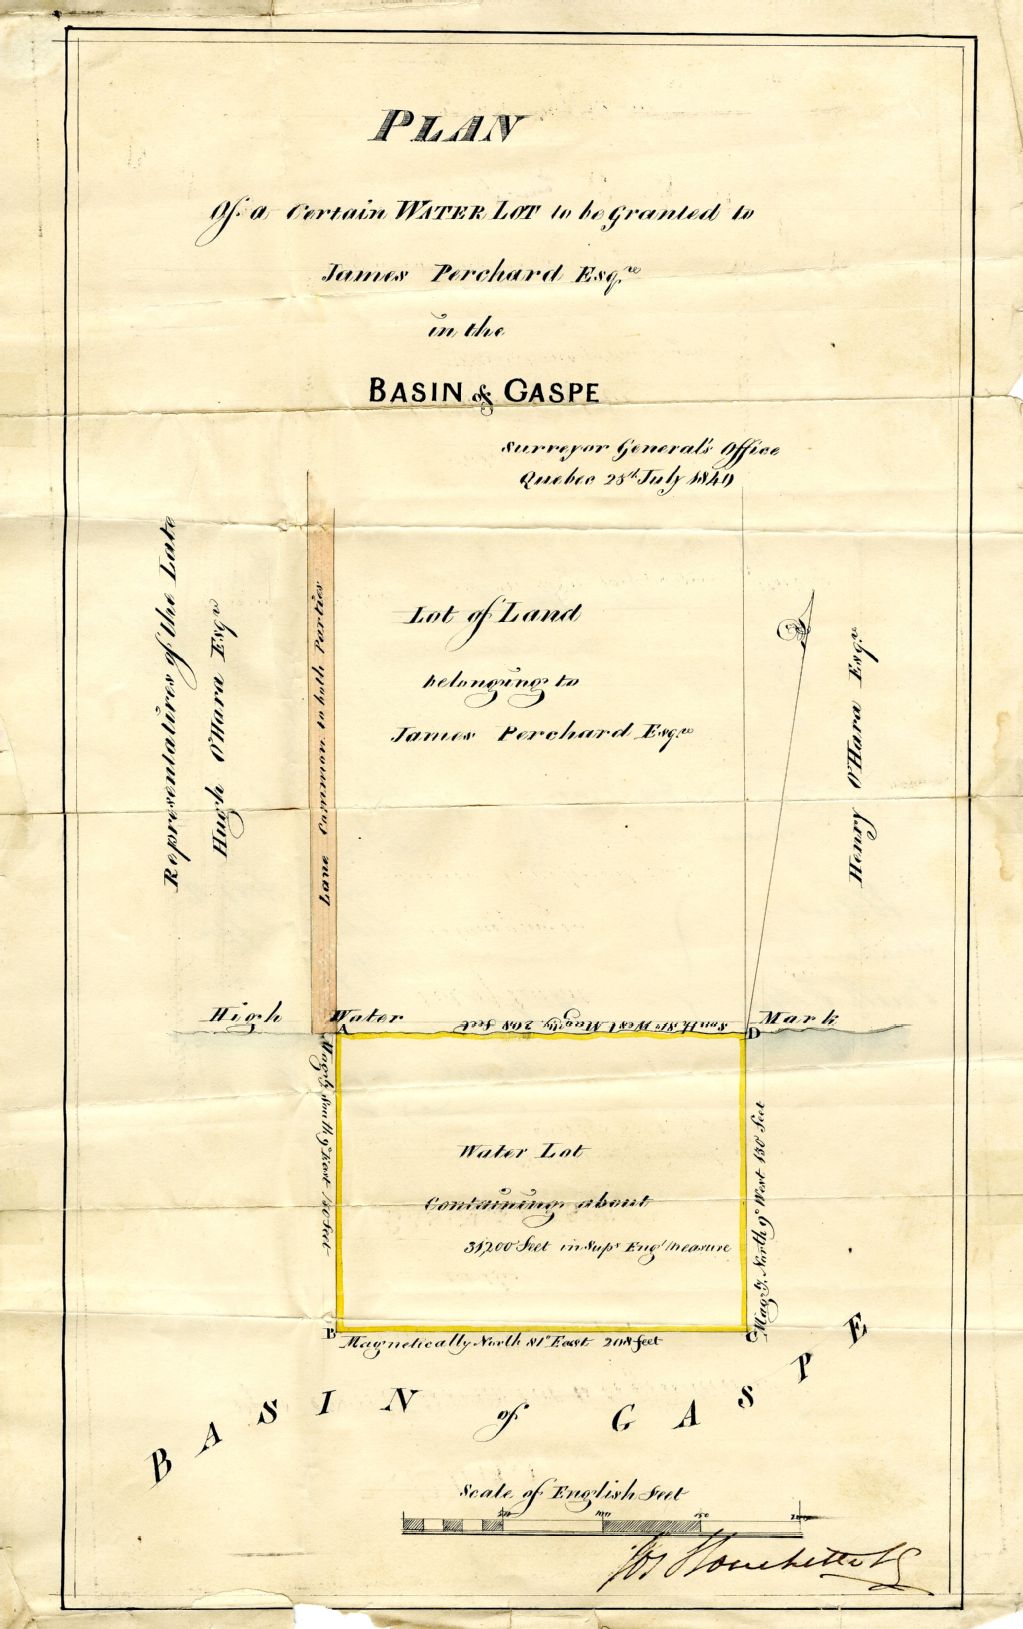 PLAN
Of a Certain WATER LOT to be Granted to
James Perchard Esqre
in the
BASIN of GASPE
Surveyor General's Office
Quebec 25th July 1840
Representatives of the Late
Hugh O'Hara Esqre
Lane Common to both Parties
Lot of Land
belonging to
James Perchard Esqre
Henry O'Hara Esqre
High Water Mark
A
South 81° West Magly. 208 feet
D
Magly South 9° East 150 feet
Water Lot
Containing about
31,200 feet in Supr Engh measure
Magly North 9° West 150 feet
B
Magnetically North 81° East 208 feet
C
BASIN of GASPE
Scale of English feet
50 100 150 200
Jos Bouchette SG